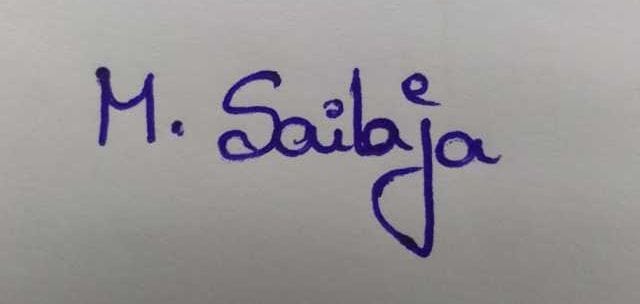 M. Sailaja